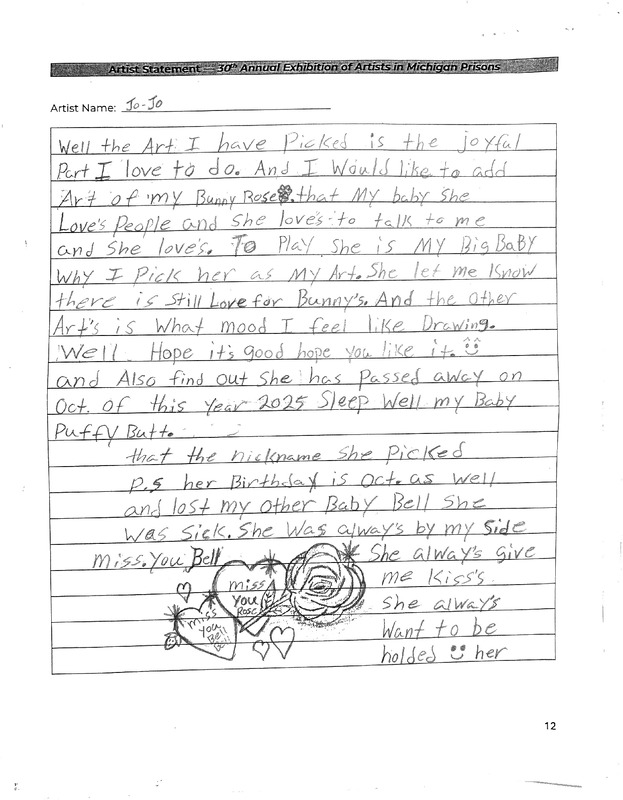 Artist Statement — 30th Annual Exhibition of Artists in Michigan Prisons
Artist Name: Jo-Jo
Well the Art I have Picked is the joyful
Part I love to do. And I Would like to add
Art of my Bunny Rose. that My baby She
Love's People and She love's to talk to me
and She love's. To Play She is MY Big BaBY
Why I Pick her as My Art. She let me Know
there is Still Love for Bunny's. And the Other
Art's is What mood I feel like Drawing.
Well Hope it's good hope you like it.
and Also find out She has Passed away on
Oct. of this Year 2025 Sleep Well my Baby
Puffy Butt.
that the nickname She Picked
P.S her Birthday is Oct. as well
and lost my Other Baby Bell She
Was Sick. She Was alway's by my Side
miss. You Bell She alway's give
me Kiss's
She alway's
Want to be
holded her
miss
You
Rose
miss
you
Bell
12